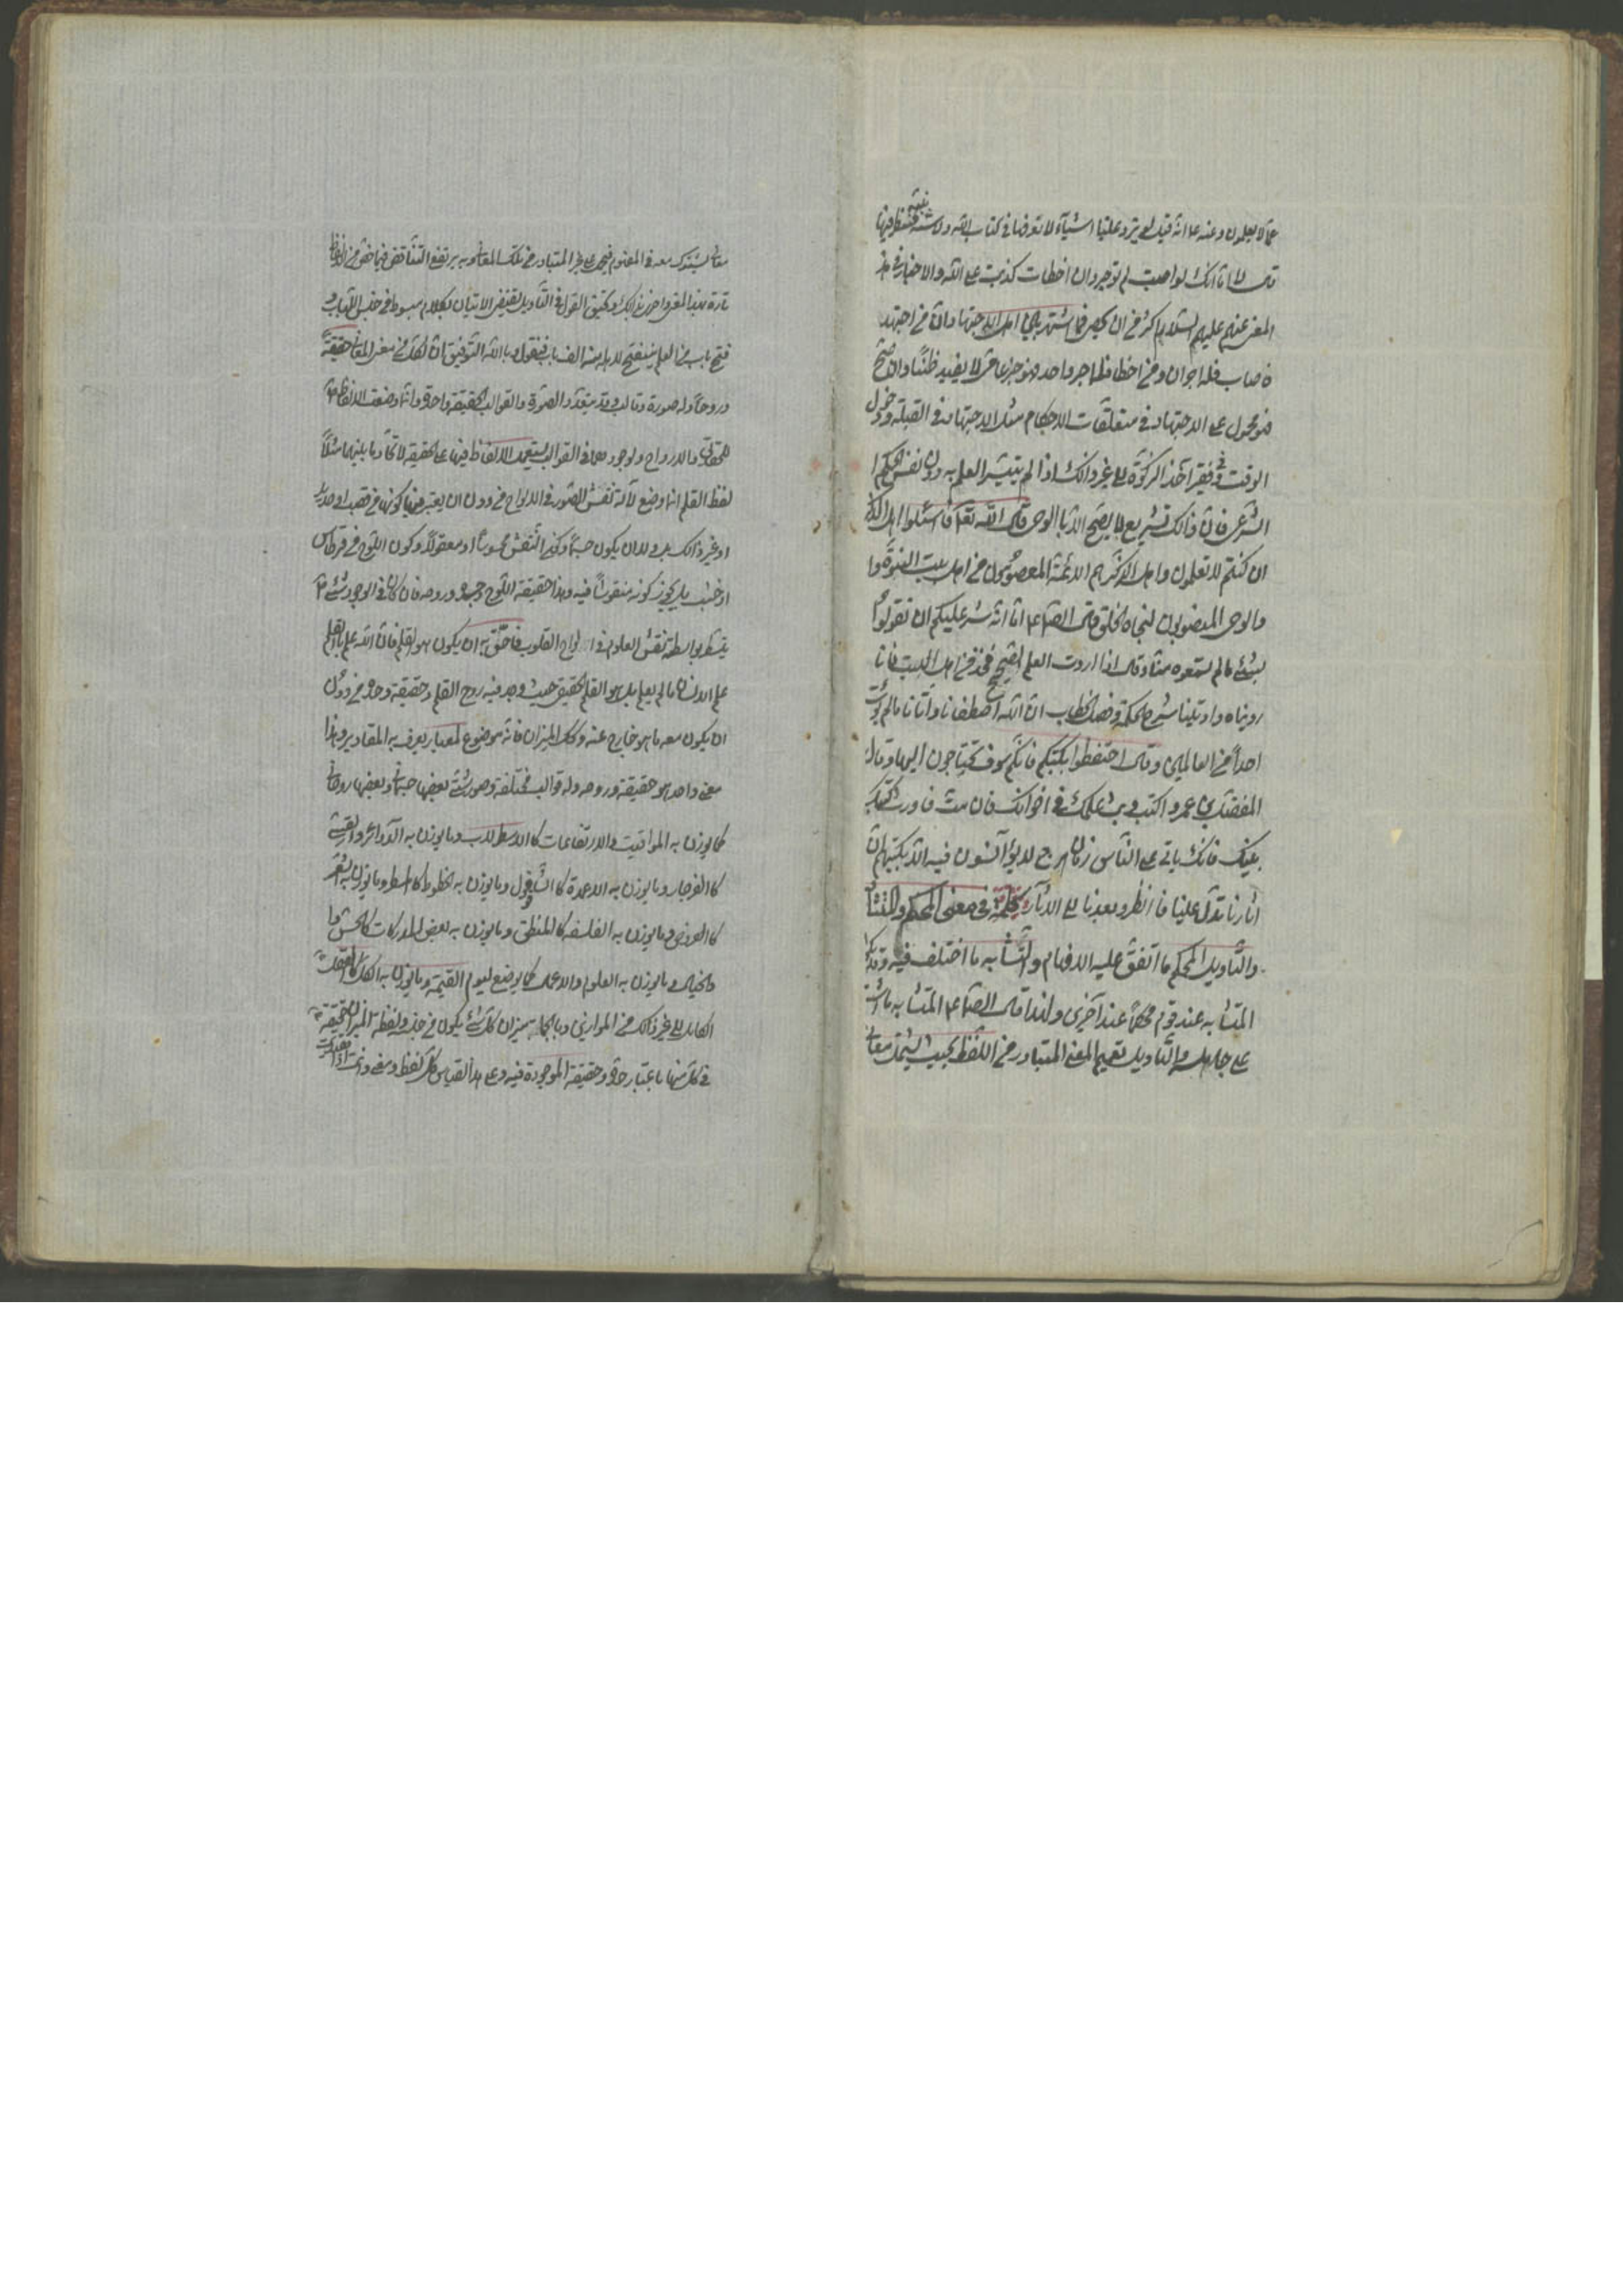 عما لا يعلمون وعنه ع انه قيل له يرد علينا اشياء لا نعرفها في كتاب الله ولا سنته فننظر فيها
قال لا اما انك لو اصبت لم توجر وان اخطات كذبت على الله والاخبار في هذا
المعنى عنهم عليهم السلام اكثر من ان يحصى فما اشتهر بين اهل الاجتهاد ان من اجتهد
فاصاب فله اجران ومن اخطا فله اجر واحد فهو خبر عامي لا يفيد ظنا وان صح
فهو محمول على الاجتهاد في متعلقات الاحكام مثل الاجتهاد في القبلة ودخول
الوقت وفي فقر آخذ الزكوة الى غير ذلك اذا لم يتيسر العلم به دون نفس الحكم
الشرعي فان ذلك تشريع لا يصح الا بالوحي قال الله تعالى فاسئلوا اهل الذكر
ان كنتم لا تعلمون واهل الذكر هم الائمة المعصومون من اهل بيت النبوة
والوحي المنصوبون لنجاة الخلق قال الصادق ع اما انه شر عليكم ان تقولوا
بشئ ما لم تسمعوه منا وقال اذا اردت العلم الصحيح فخذ من اهل البيت فانا
رويناه واوتينا شرح الحكمة وفصل الخطاب ان الله اصطفانا وآتانا ما لم يؤت
احدا من العالمين وقال احتفظوا بكتبكم فانكم سوف تحتاجون اليها وقال
المفضل بن عمرو اكتب وبث علمك في اخوانك فان مت فاورث كتبك
بنيك فانه ياتي على الناس زمان هرج لا يؤانسون فيه الا بكتبهم ان
آثارنا تدل علينا فانظروا بعدنا الى الآثار كلمة في معنى المحكم والمتشابه
والتاويل المحكم ما اتفق عليه الافهام والمتشابه ما اختلف فيه وقد يكون
المتشابه عند قوم محكما عند آخرين ولهذا قال الصادق ع المتشابه ما اشتبه
على جاهله والتاويل تعميم المعنى المتبادر من اللفظ بحيث يشمل معاني
معان يشترك معه في المفهوم فيحمل على غير المتبادر من تلك المعاني وبه يرتفع التناقض فيما خص من الالفاظ
تارة بهذا المعنى واخرى بذلك وتحقيق القول في التاويل يقتضي الاتيان بكلام مبسوط من جنس اللباب و
فتح باب من العلم ينفتح لاهله منه الف باب فنقول وبالله التوفيق ان لكل معنى من المعاني حقيقة
وروحا وله صورة وقالب وقد يتعدد الصورة والقوالب لحقيقة واحدة وانما وضعت الالفاظ
للحقائق والارواح ولوجودهما في القوالب يستعمل الالفاظ فيها على الحقيقة لاتحاد ما بينهما مثلا
لفظ القلم انما وضع لآلة نقش الصور في الالواح من دون ان يعتبر فيها كونها من قصب او حديد
او غير ذلك بل ولا ان يكون جسما وكون النقش محسوسا او معقولا وكون اللوح من قرطاس
او خشب بل مجرد كونه منقوشا فيه وهذا حقيقة اللوح وحده وروحه فان كان في الوجود شئ
يتسطر بواسطته نقش العلوم في الواح القلوب فاحق به ان يكون هو القلم فان الله علم بالقلم
علم الانسان ما لم يعلم بل هو القلم الحقيقي حيث وجد فيه روح القلم وحقيقته وحده من دون
ان يكون معه ما هو خارج عنه وكذلك الميزان فانه موضوع لمعيار يعرف به المقادير وهذا
معنى واحد هو حقيقته وروحه وله قوالب مختلفة وصور شتى بعضها جسماني وبعضها روحاني
كما يوزن به المواقيت والارتفاعات كالاسطرلاب وما يوزن به الدوائر والقسي
كالفرجار وما يوزن به الاعمدة كالشاقول وما يوزن به الخطوط كالمسطر وما يوزن به الشعر
كالعروض وما يوزن به الفلسفة كالمنطق وما يوزن به بعض المدركات كالحس
والخيال وما يوزن به العلوم والاعمال كما يوضع ليوم القيمة وما يوزن به الكل كالعقل
الكامل الى غير ذلك من الموازين وبالجملة ميزان كل شئ يكون من جنسه ولفظة الميزان حقيقة
في كل منها باعتبار حده وحقيقته الموجودة فيه وعلى هذا القياس كل لفظ ومعنى